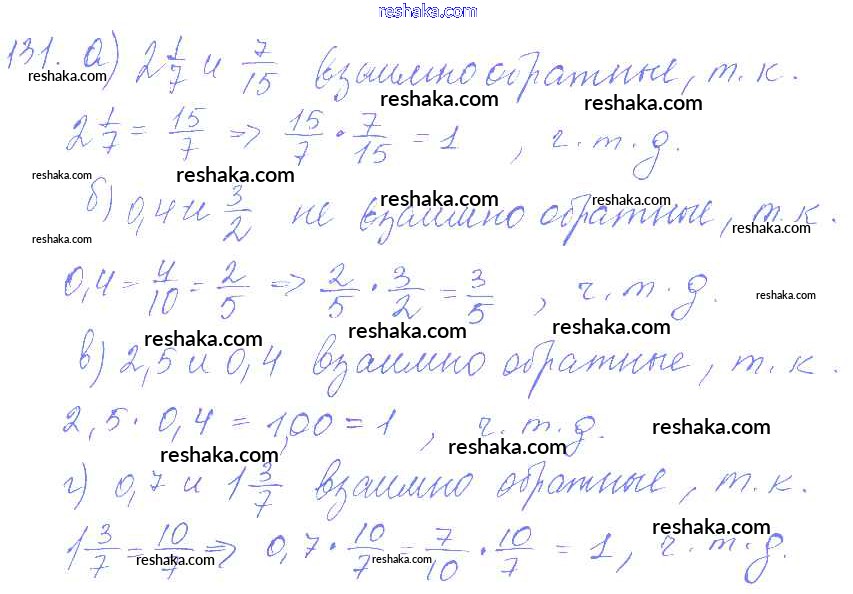 reshaka.com
131. а) 2 1/7 и 7/15 взаимно обратные, т. к.
reshaka.com reshaka.com reshaka.com
2 1/7 = 15/7 => 15/7 · 7/15 = 1 , ч. т. д.
reshaka.com reshaka.com
б) 0,4 и 3/2 не взаимно обратные, т. к.
reshaka.com reshaka.com reshaka.com reshaka.com
0,4 = 4/10 = 2/5 => 2/5 · 3/2 = 3/5 , ч. т. д.
reshaka.com
reshaka.com reshaka.com reshaka.com
в) 2,5 и 0,4 взаимно обратные, т. к.
2,5 · 0,4 = 1,00 = 1 , ч. т. д.
reshaka.com
reshaka.com reshaka.com
г) 0,7 и 1 3/7 взаимно обратные, т. к.
reshaka.com
1 3/7 = 10/7 => 0,7 · 10/7 = 7/10 · 10/7 = 1, ч. т. д.
reshaka.com reshaka.com